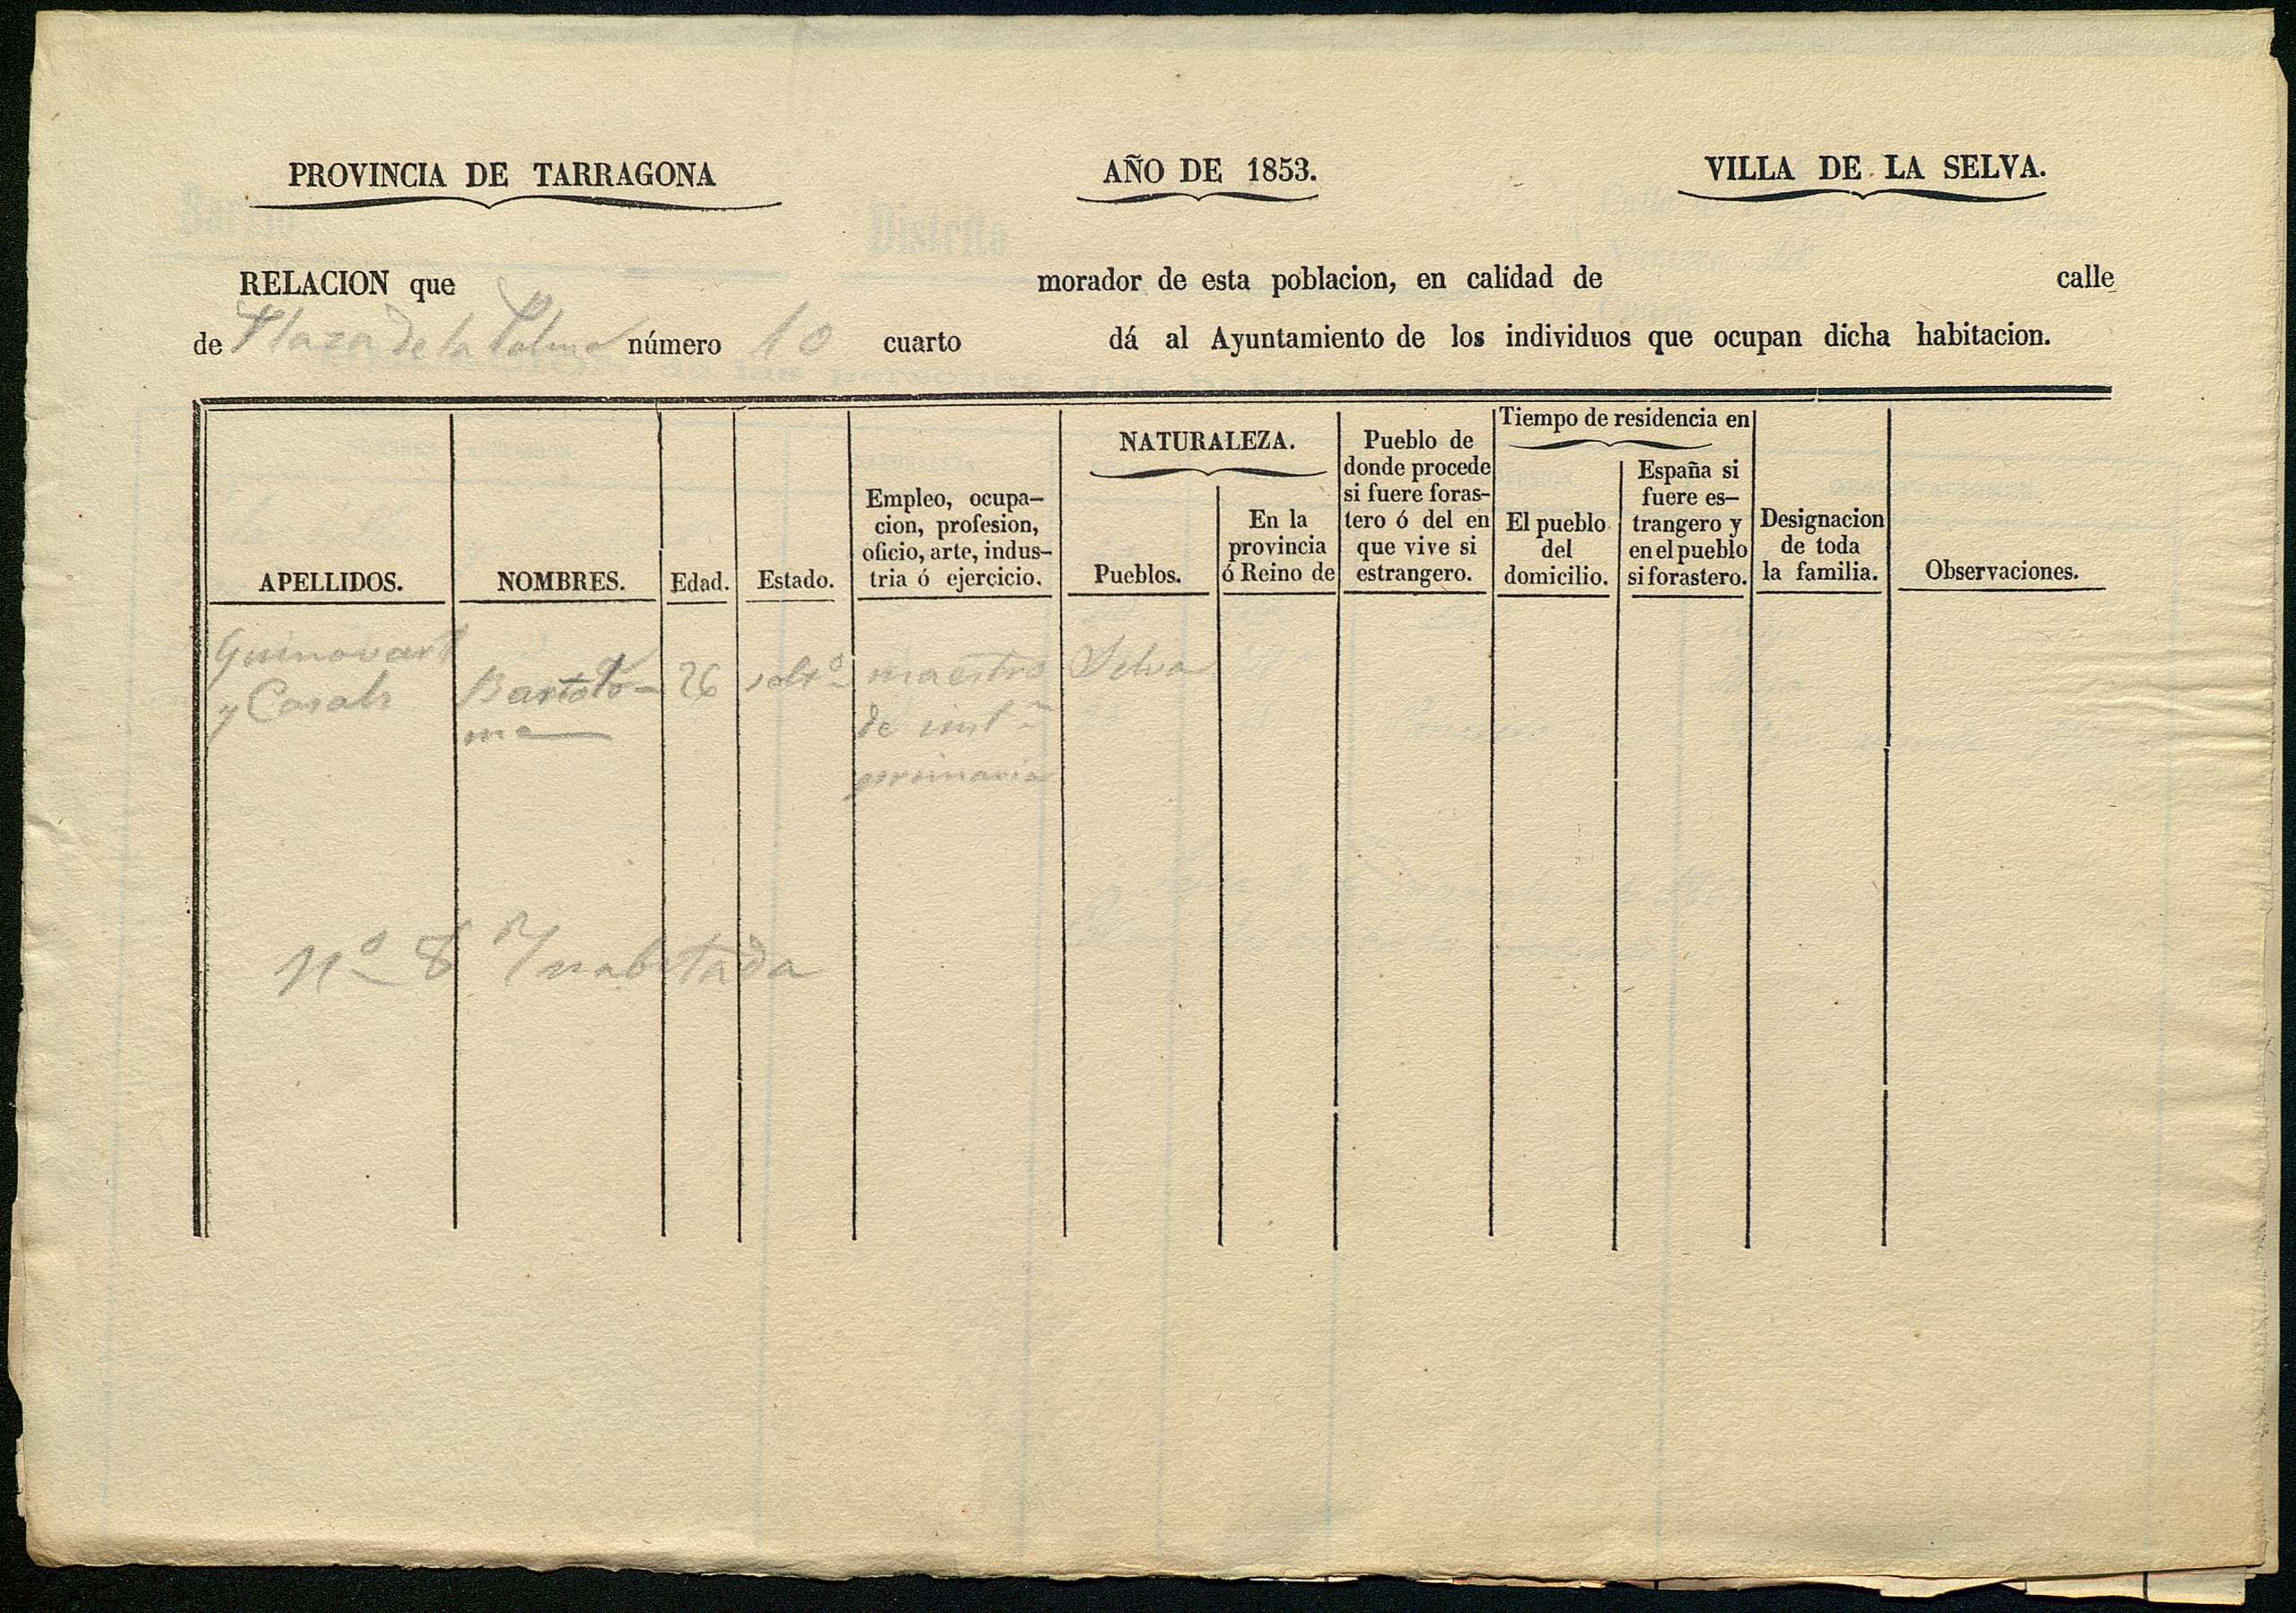 PROVINCIA DE TARRAGONA
AÑO DE 1853.
VILLA DE LA SELVA.
RELACION que morador de esta poblacion, en calidad de calle
de Plaza de la Palma número 10 cuarto dá al Ayuntamiento de los individuos que ocupan dicha habitacion.
APELLIDOS.
NOMBRES.
Edad.
Estado.
Empleo, ocupa-
cion, profesion,
oficio, arte, indus-
tria ó ejercicio.
NATURALEZA.
Pueblos.
En la
provincia
ó Reino de
Pueblo de
donde procede
si fuere foras-
tero ó del en
que vive si
estrangero.
Tiempo de residencia en
El pueblo
del
domicilio.
España si
fuere es-
trangero y
en el pueblo
si forastero.
Designacion
de toda
la familia.
Observaciones.
Guinovart
y Casals
Bartolo-
me
26
solto
maestro
de inston
primaria
Selva
Nº 8 Inabitada
Distrito